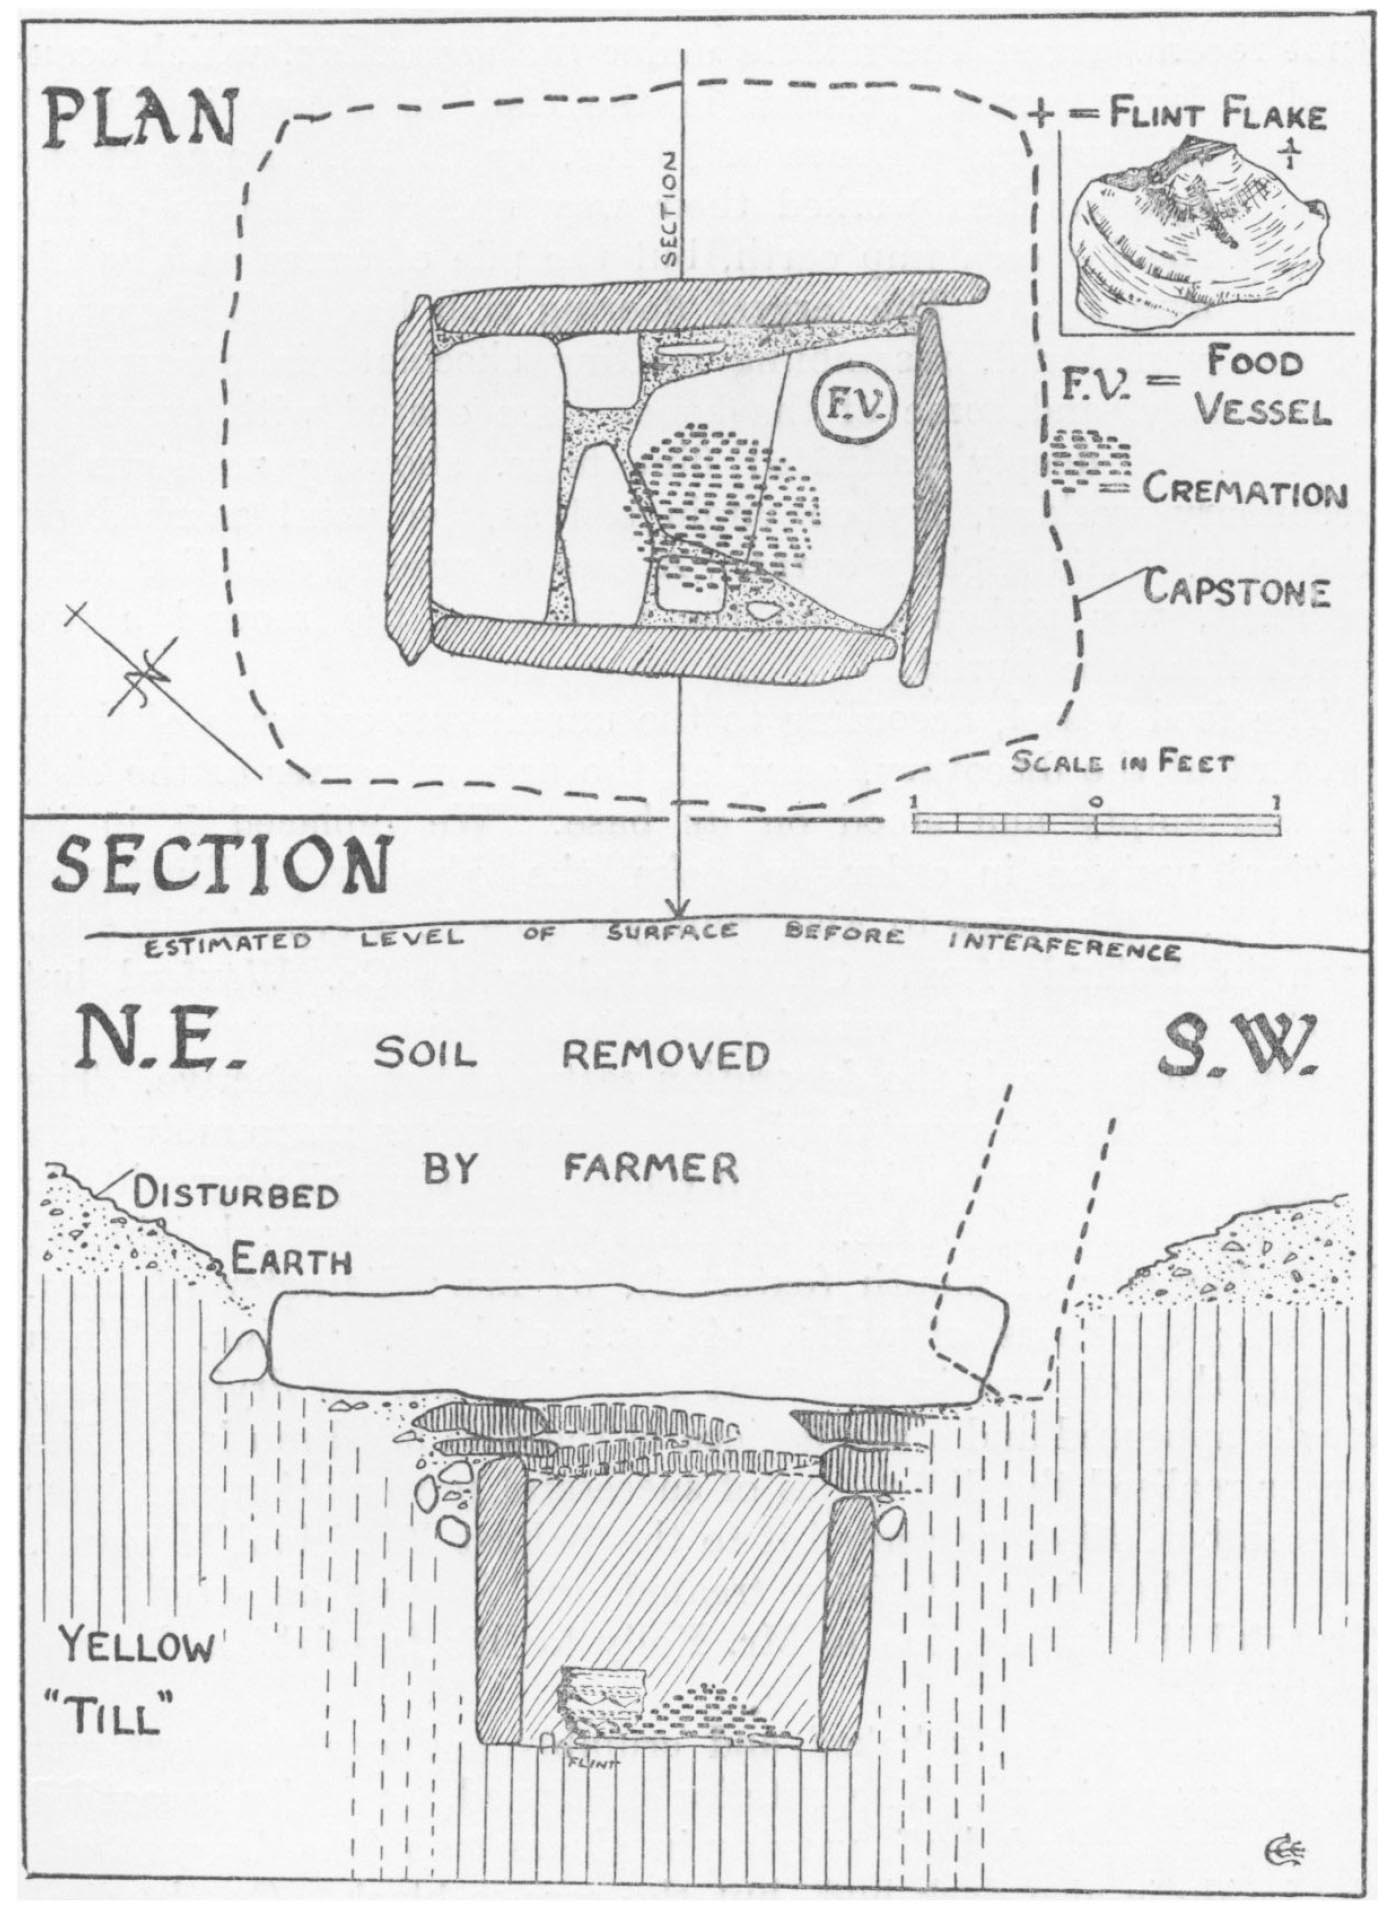 PLAN
SECTION
+ = FLINT FLAKE
1/1
F.V. = FOOD
VESSEL
F.V.
= CREMATION
CAPSTONE
N
SCALE IN FEET
1 0 1
SECTION
ESTIMATED LEVEL OF SURFACE BEFORE INTERFERENCE
N.E. S.W.
SOIL REMOVED
BY FARMER
DISTURBED
EARTH
YELLOW
"TILL"
FLINT